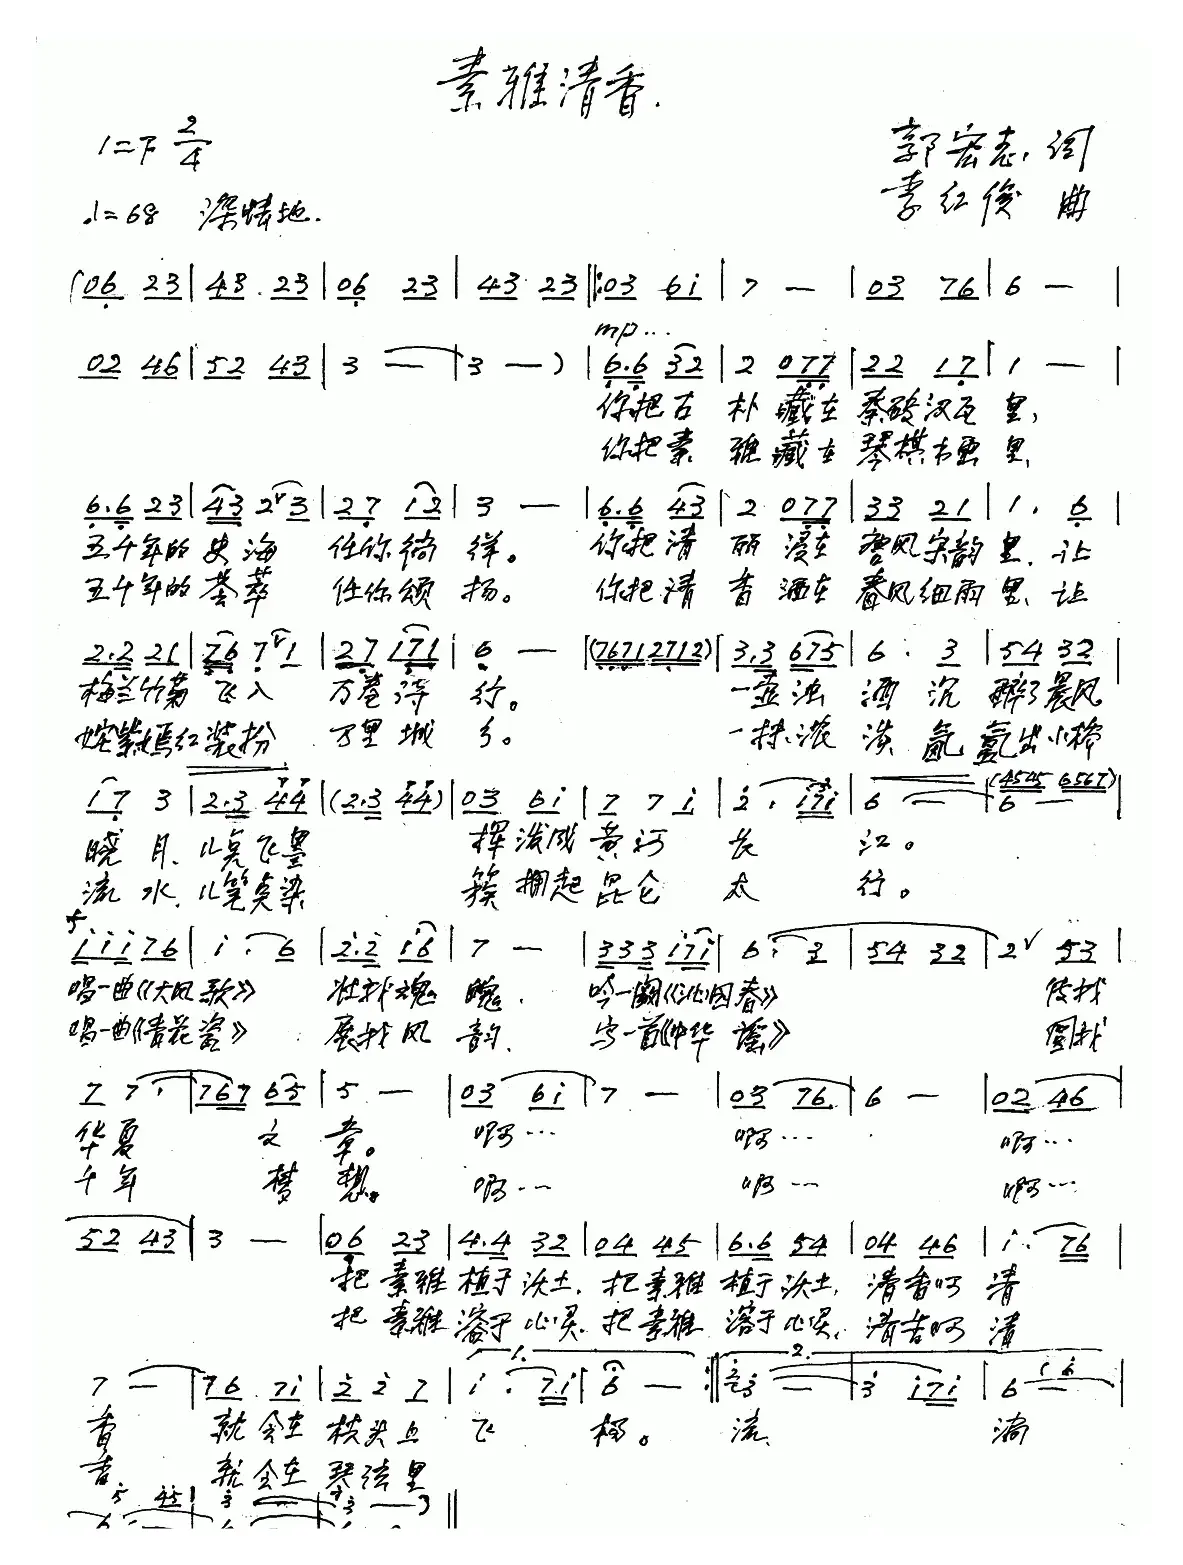 素雅清香.
1=F 2/4
郭宏志 词
李红俊 曲
♩=68 深情地.
(06 23 | 43 23 | 06 23 | 43 23 ‖: 03 6i | 7 — | 03 76 | 6 — |
mp...
02 46 | 52 43 | 3 — | 3 — ) | 6.6 32 | 2 077 | 22 17 | 1 — |
你把古 朴 藏在 秦砖汉瓦 里,
你把素 雅 藏在 琴棋书画 里,
6.6 23 | 43 2ᵛ3 | 27 12 | 3 — | 6.6 43 | 2 077 | 33 21 | 1. 6 |
五千年的 史海 任你徜 徉。 你把清 丽 浸在 唐风宋韵 里, 让
五千年的 荟萃 任你颂 扬。 你把清 香 洒在 春风细雨 里, 让
2.2 21 | 76 7ᵛ1 | 27 171 | 6 — | (7671 2712) | 3.3 675 | 6 . 3 | 54 32 |
梅兰竹菊 飞入 万卷诗 行。 一壶浊 酒 沉 醉了晨风
姹紫嫣红 装扮 万里城 乡。 一抹浓 氤 氲出小桥
(4545 6567)
i7 3 | 2.3 44 | (2.3 44) | 03 6i | 7 7 i | 2 . i7i | 6 — | 6 — |
晓 月, 几点飞墨 挥泼成 黄河 长 江。
流 水, 几笔点染 簇拥起 昆仑 太 行。
iii76 | i . 6 | 2.2 i6 | 7 — | 333 i7i | 6 . 3 | 54 32 | 2ᵛ 53 |
唱一曲《大风歌》 壮我魂 魄, 吟一阕《沁园春》 传我
唱一曲《青花瓷》 展我风 韵, 写一首《中华 谣》 圆我
7 7 . | 767 65 | 5 — | 03 6i | 7 — | 03 76 | 6 — | 02 46 |
华夏 文 章。 啊… 啊… 啊…
千年 梦 想。 啊… 啊… 啊…
52 43 | 3 — | 06 23 | 4.4 32 | 04 45 | 6.6 54 | 04 46 | i . 76 |
把 素雅 植于沃土, 把素雅 植于沃土, 清香啊 清
把 素雅 溶于心灵, 把素雅 溶于心灵, 清香啊 清
1. 2.
7 — | 76 7i | 2 2 7 | i . 7i | 6 — :‖ 3 — | 3 i7i | 6 — |
香 就会在 枝头上 飞 扬。 流 淌
香 就会在 琴弦里